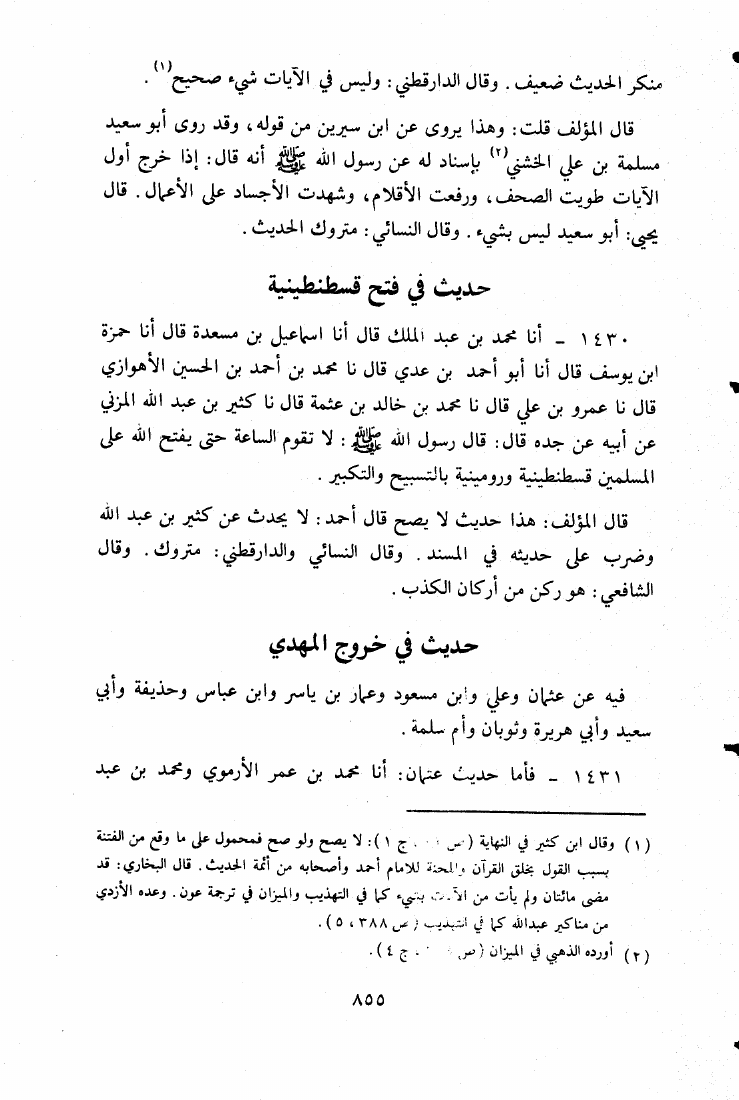 منكر الحديث ضعيف. وقال الدارقطني: وليس في الآيات شيء صحيح(١).
قال المؤلف قلت: وهذا يروى عن ابن سيرين من قوله، وقد روى أبو سعيد
مسلمة بن علي الخشني(٢) بإسناد له عن رسول الله ﷺ أنه قال: إذا خرج أول
الآيات طويت الصحف، ورفعت الأقلام، وشهدت الأجساد على الأعمال. قال
يحيى: أبو سعيد ليس بشيء. وقال النسائي: متروك الحديث.
حديث في فتح قسطنطينية
١٤٣٠ - أنا محمد بن عبد الملك قال أنا اسماعيل بن مسعدة قال أنا حمزة
ابن يوسف قال أنا أبو أحمد بن عدي قال نا محمد بن أحمد بن الحسين الأهوازي
قال نا عمرو بن علي قال نا محمد بن خالد بن عثمة قال نا كثير بن عبد الله المزني
عن أبيه عن جده قال: قال رسول الله ﷺ: لا تقوم الساعة حتى يفتح الله على
المسلمين قسطنطينية ورومينية بالتسبيح والتكبير.
قال المؤلف: هذا حديث لا يصح قال أحمد: لا يحدث عن كثير بن عبد الله
وضرب على حديثه في المسند. وقال النسائي والدارقطني: متروك. وقال
الشافعي: هو ركن من أركان الكذب.
حديث في خروج المهدي
فيه عن عثمان وعلي وابن مسعود وعمار بن ياسر وابن عباس وحذيفة وأبي
سعيد وأبي هريرة وثوبان وأم سلمة.
١٤٣١ - فأما حديث عثمان: أنا محمد بن عمر الأرموي ومحمد بن عبد
(١) وقال ابن كثير في النهاية (ص ج ١): لا يصح ولو صح فمحمول على ما وقع من الفتنة
بسبب القول بخلق القرآن والمحنة للامام أحمد وأصحابه من أئمة الحديث. قال البخاري: قد
مضى مائتان ولم يأت من الآيات بشيء كما في التهذيب والميزان في ترجمة عون. وعده الأزدي
من مناكير عبدالله كما في التهذيب (ص ٣٨٨، ٥).
(٢) أورده الذهبي في الميزان (ص ج ٤).
٨٥٥